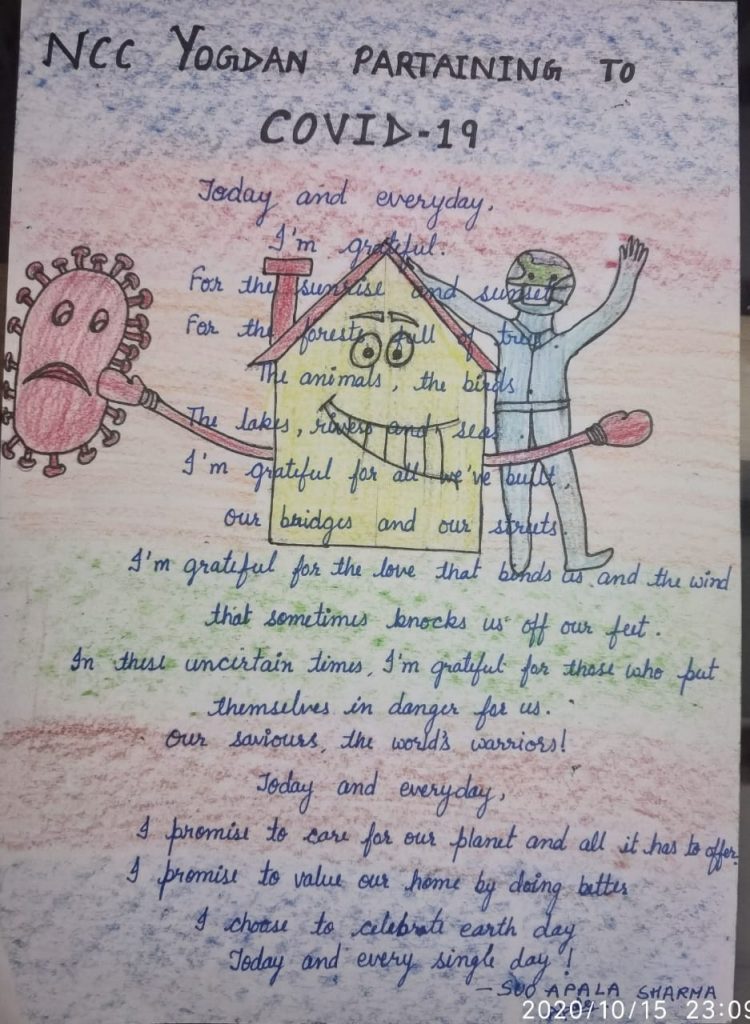 NCC YOGDAN PARTAINING TO
COVID-19
Today and everyday.
I'm grateful.
For the sunrise and sunset
For the forests full of trees
The animals, the birds
The lakes, rivers and seas
I'm grateful for all we've built.
Our bridges and our streets.
I'm grateful for the love that binds us and the wind
that sometimes knocks us off our feet.
In these uncirtain times, I'm grateful for those who put
themselves in danger for us.
Our saviours, the world's warriors!
Today and everyday,
I promise to care for our planet and all it has to offer.
I promise to value our home by doing better
I choose to celebrate earth day
Today and every single day!
- SUO APALA SHARMA
2020/10/15 23:09